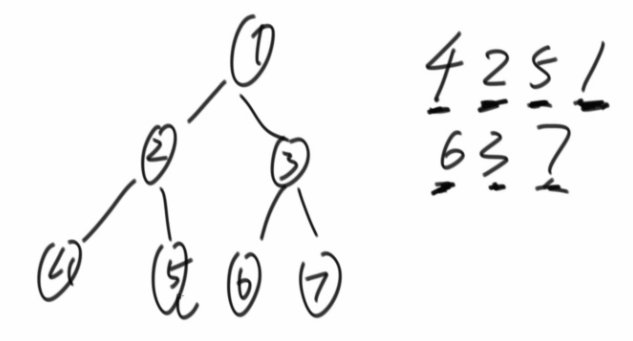 1
2 3
4 5 6 7
4 2 5 1
6 3 7